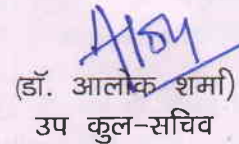 (डॉ. आलोक शर्मा)
उप कुल-सचिव